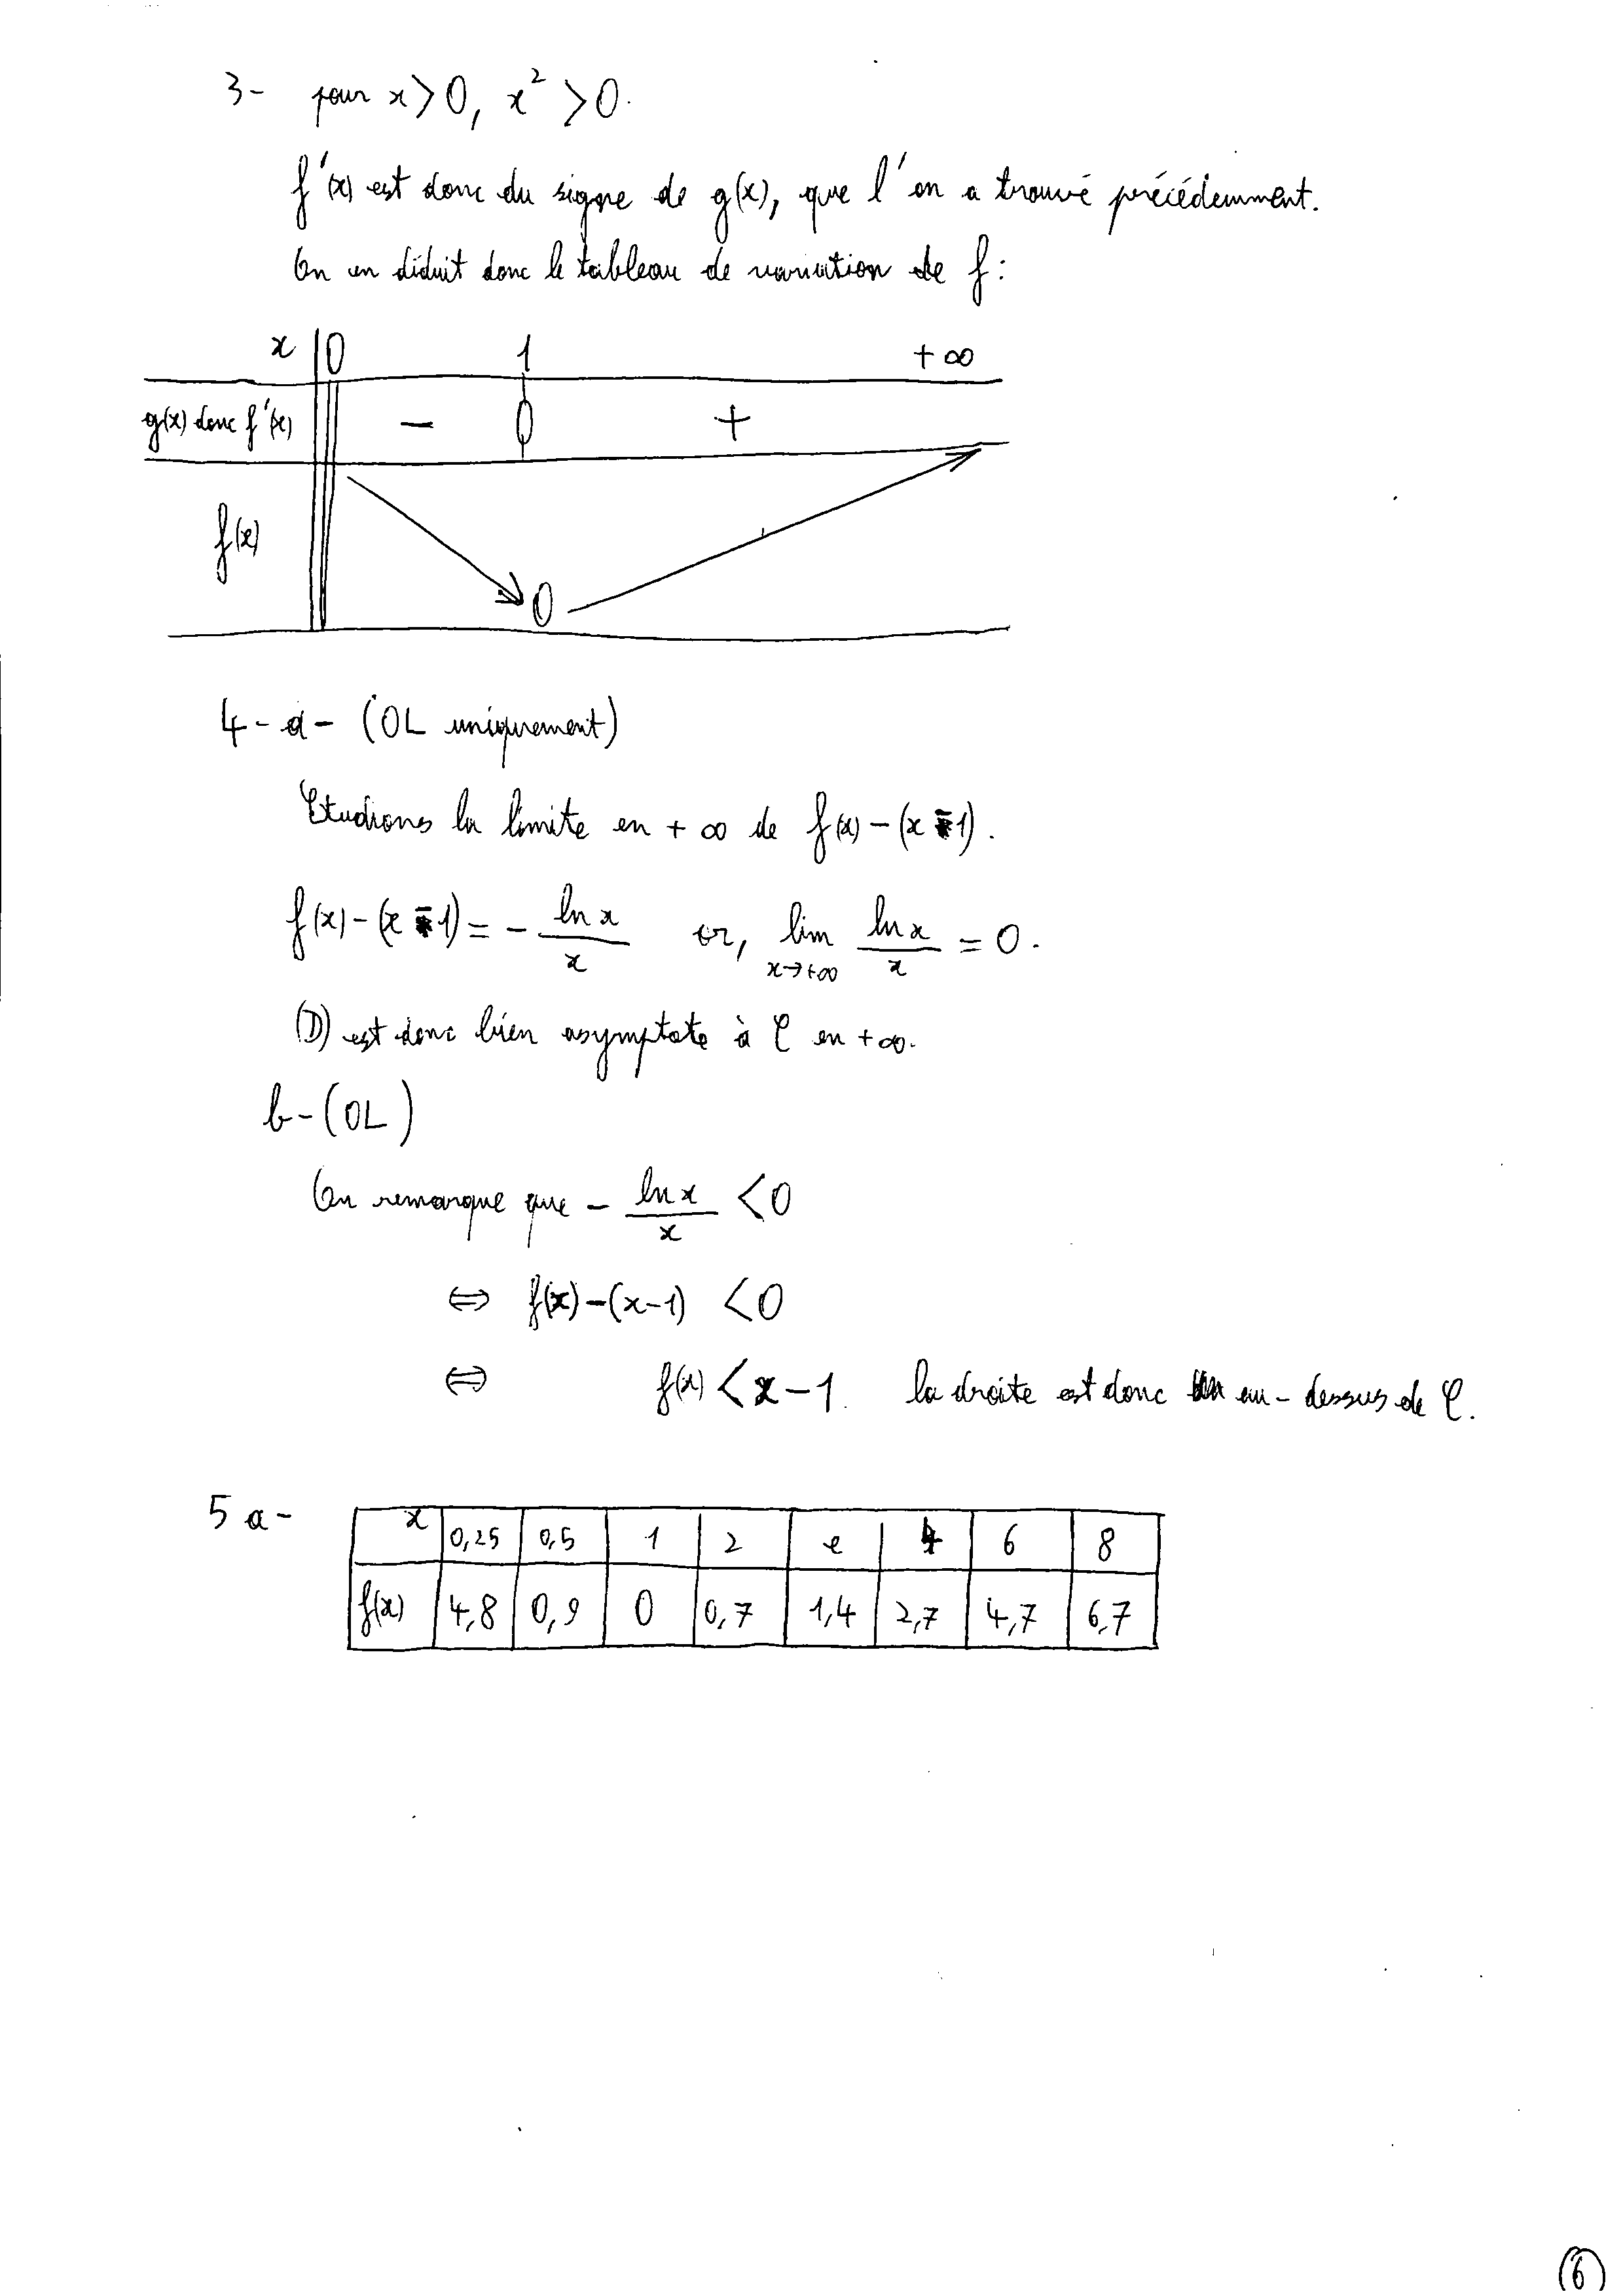 3- pour x > 0, x² > 0.
f'(x) est donc du signe de g(x), que l'on a trouvé précédemment.
On en déduit donc le tableau de variation de f :
x 0 1 +∞
g(x) donc f'(x) - 0 +
f(x) 0
4-a- (OL uniquement)
Etudions la limite en +∞ de f(x) - (x - 1).
f(x) - (x - 1) = - ln x / x or, lim x→+∞ ln x / x = 0.
(D) est donc bien asymptote à C en +∞.
b-(OL)
On remarque que - ln x / x < 0
⇔ f(x) - (x-1) < 0
⇔ f(x) < x - 1. la droite est donc au-dessus de C.
5 a-
x 0,25 0,5 1 2 e 4 6 8
f(x) 4,8 0,9 0 0,7 1,4 2,7 4,7 6,7
6